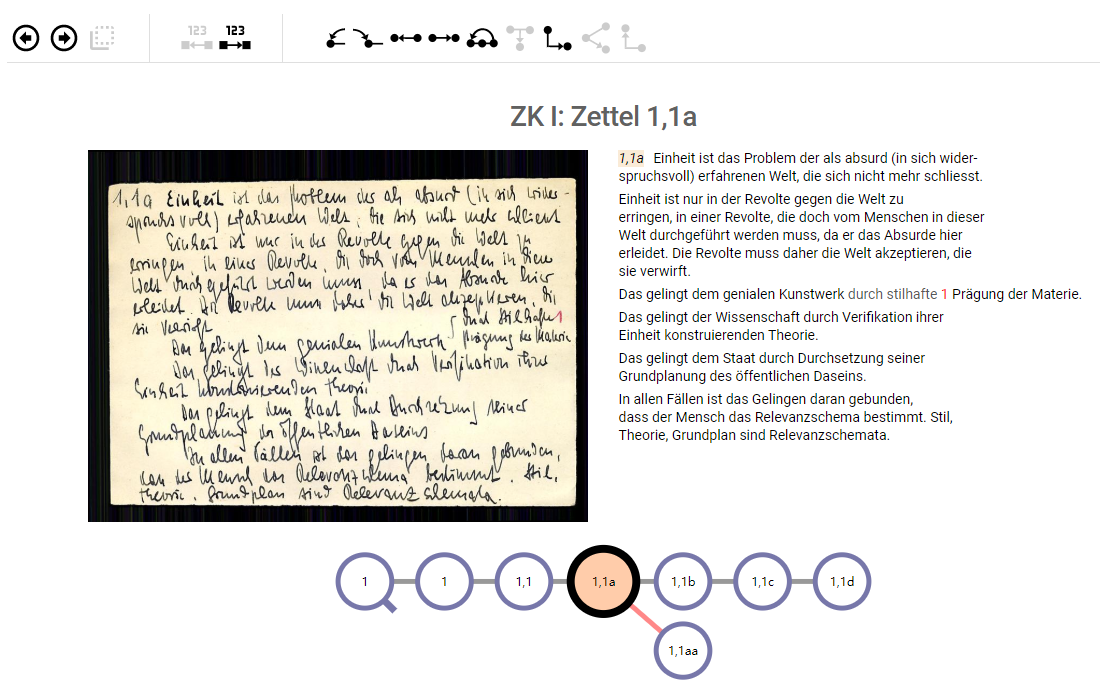 123
123
ZK I: Zettel 1,1a
1,1a Einheit ist das Problem der als absurd (in sich wider-
spruchsvoll) erfahrenen Welt, die sich nicht mehr schliesst
Einheit ist nur in der Revolte gegen die Welt zu
erringen, in einer Revolte, die doch vom Menschen in dieser
Welt durchgeführt werden muss, da er das Absurde hier
erleidet. Die Revolte muss daher die Welt akzeptieren, die
sie verwirft
durch stilhafte 1
Das gelingt dem genialen Kunstwerk Prägung der Materie
Das gelingt der Wissenschaft durch Verifikation ihrer
Einheit konstruierenden Theorie
Das gelingt dem Staat durch Durchsetzung seiner
Grundplanung des öffentlichen Daseins
In allen Fällen ist das Gelingen daran gebunden,
dass der Mensch das Relevanzschema bestimmt. Stil,
Theorie, Grundplan sind Relevanzschemata.
1,1a Einheit ist das Problem der als absurd (in sich wider-
spruchsvoll) erfahrenen Welt, die sich nicht mehr schliesst.
Einheit ist nur in der Revolte gegen die Welt zu
erringen, in einer Revolte, die doch vom Menschen in dieser
Welt durchgeführt werden muss, da er das Absurde hier
erleidet. Die Revolte muss daher die Welt akzeptieren, die
sie verwirft.
Das gelingt dem genialen Kunstwerk durch stilhafte 1 Prägung der Materie.
Das gelingt der Wissenschaft durch Verifikation ihrer
Einheit konstruierenden Theorie.
Das gelingt dem Staat durch Durchsetzung seiner
Grundplanung des öffentlichen Daseins.
In allen Fällen ist das Gelingen daran gebunden,
dass der Mensch das Relevanzschema bestimmt. Stil,
Theorie, Grundplan sind Relevanzschemata.
1 1 1,1 1,1a 1,1b 1,1c 1,1d
1,1aa